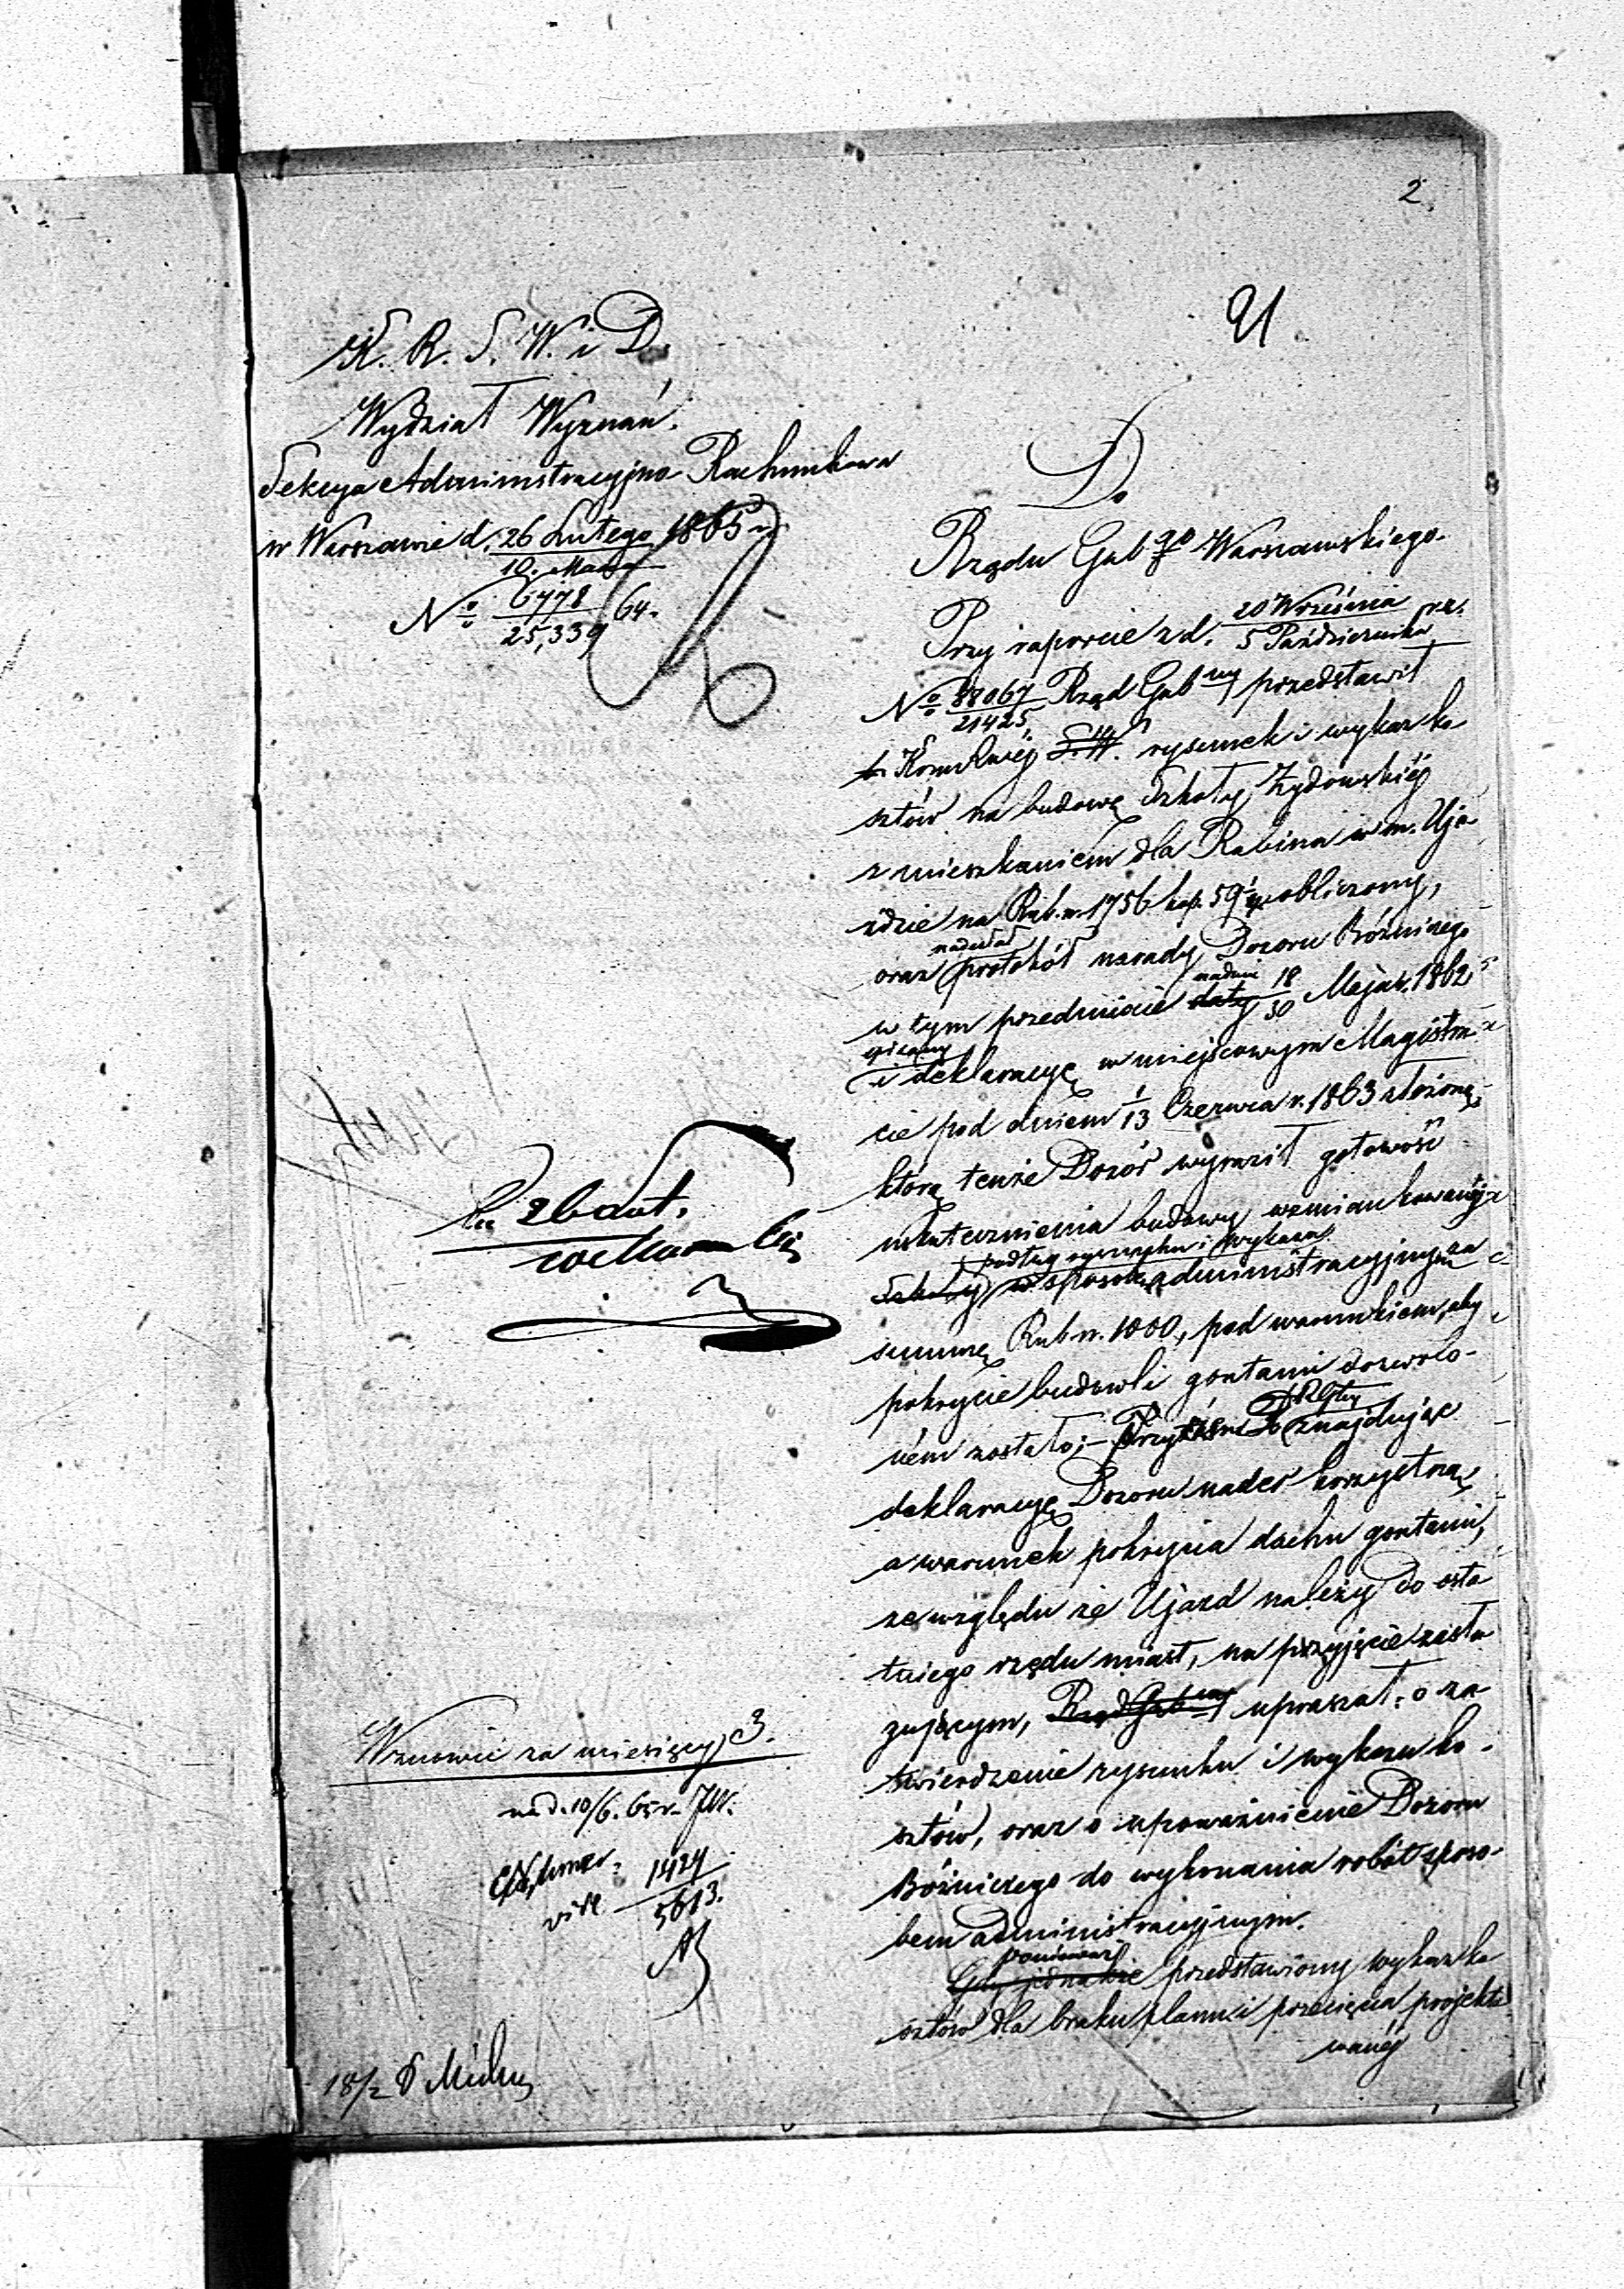 2.
K. R. S. W. i D.
Wydział Wyznań.
Sekcya Administracyjno Rachunkowa
w Warszawie d. 26 Lutego 1865 r.
10. Marca
No 6778 64.
25,339
Do
Rządu Gubgo Warszawskiego.
Przy raporcie z d. 20 Września
5 Października
No 88067 Rząd Gubny przedstawił
21425
rysunek i wykaz ko
sztów na budowę Szkoły Żydowskiéj
z mieszkaniem dla Rabina w m. Uja
ździe na Rub. sr. 1756 kop. 59 obliczony,
nadesłał
oraz protokół narady Dozoru Bóżniczego
w tym przedmiocie daty 18/30 Maja r. 1862
spisany
i deklaracyę w miejscowym Magistra
cie pod dniem 1/13 Czerwca r. 1863 złożoną,
którą tenże Dozór wyraził gotowość
uskutecznienia budowy wzmiankowanéj
podług rysunku i wykazu
Szkoły w sposób administracyjny za
summę Rub sr. 1000, pod warunkiem, aby
pokrycie budowli gontami dozwolo-
ném zostało; – Przytém znajdując
deklaracyę Dozoru nader korzystną,
a warunek pokrycia dachu gontami,
ze względu że Ujazd należy do osta
tniego rzędu miast, na przyjęcie zasłu
gującym, Rząd Gubny upraszał o za
twierdzenie rysunku i wykazu ko-
sztów, oraz o upoważnienie Dozoru
Bóżniczego do wykonania robót sposo-
bem administracyjnym.
ponieważ
Gdy jednakże przedstawiony wykaz ko
sztów dla braku planu i przecięcia projekto
wanéj
Wznowić za miesięcy 3.
na d. 10/6. 65 r.
1424
5613.
18/2